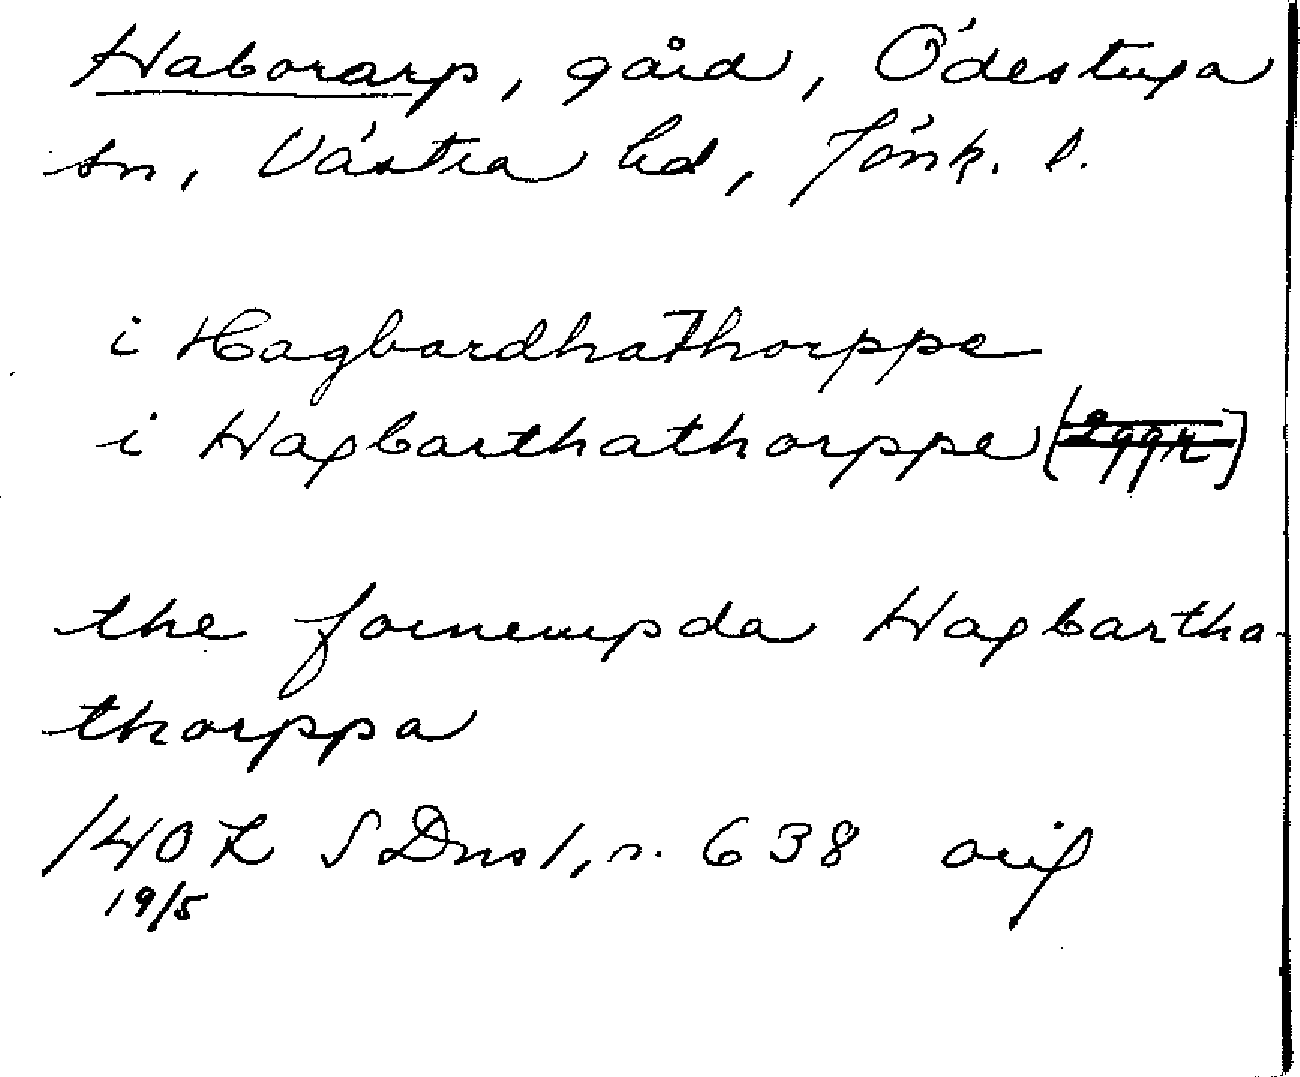 Haborarp, gård, Ödestuga
sn, Västra hd, Jönk. l.
i HagbardhaThorppe
i Hagbarthathorppe (2 ggr)
the fornempda Hagbartha-
thorppa
1402 SDns 1, s. 638 orig
19/5